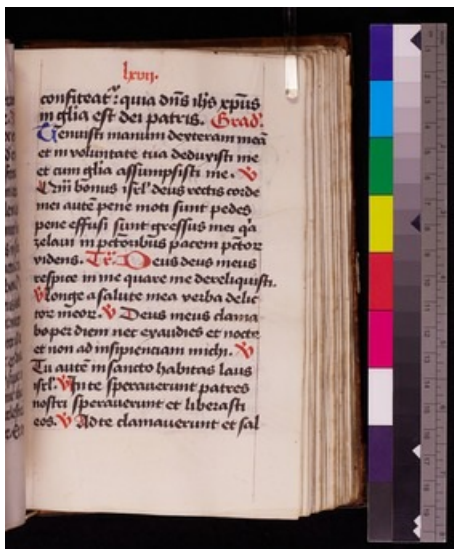 lxvij.
confiteat᷑: quia dn̄s ih̄s xp̄us
in gl̄ia est dei patris. Grad᷑.
Tenuisti manum dexteram meā
et in voluntate tua deduxisti me
et cum gl̄ia assumpsisti me. ℣
Qm̄ bonus isrl̄ deus rectis corde
mei autē pene moti sunt pedes
pene effusi sunt gressus mei q̄a
zelaui in pc̄toribus pacem pc̄tor
videns. Tr̄. Deus deus meus
respice in me quare me dereliquisti.
℣ longe a salute mea verba delic
tor meor. ℣ Deus meus clama
bo per diem nec exaudies et nocte
et non ad insipienciam michi. ℣
Tu autē in sancto habitas laus
isrl̄. ℣ In te sperauerunt patres
nostri sperauerunt et liberasti
eos. ℣ Ad te clamauerunt et sal